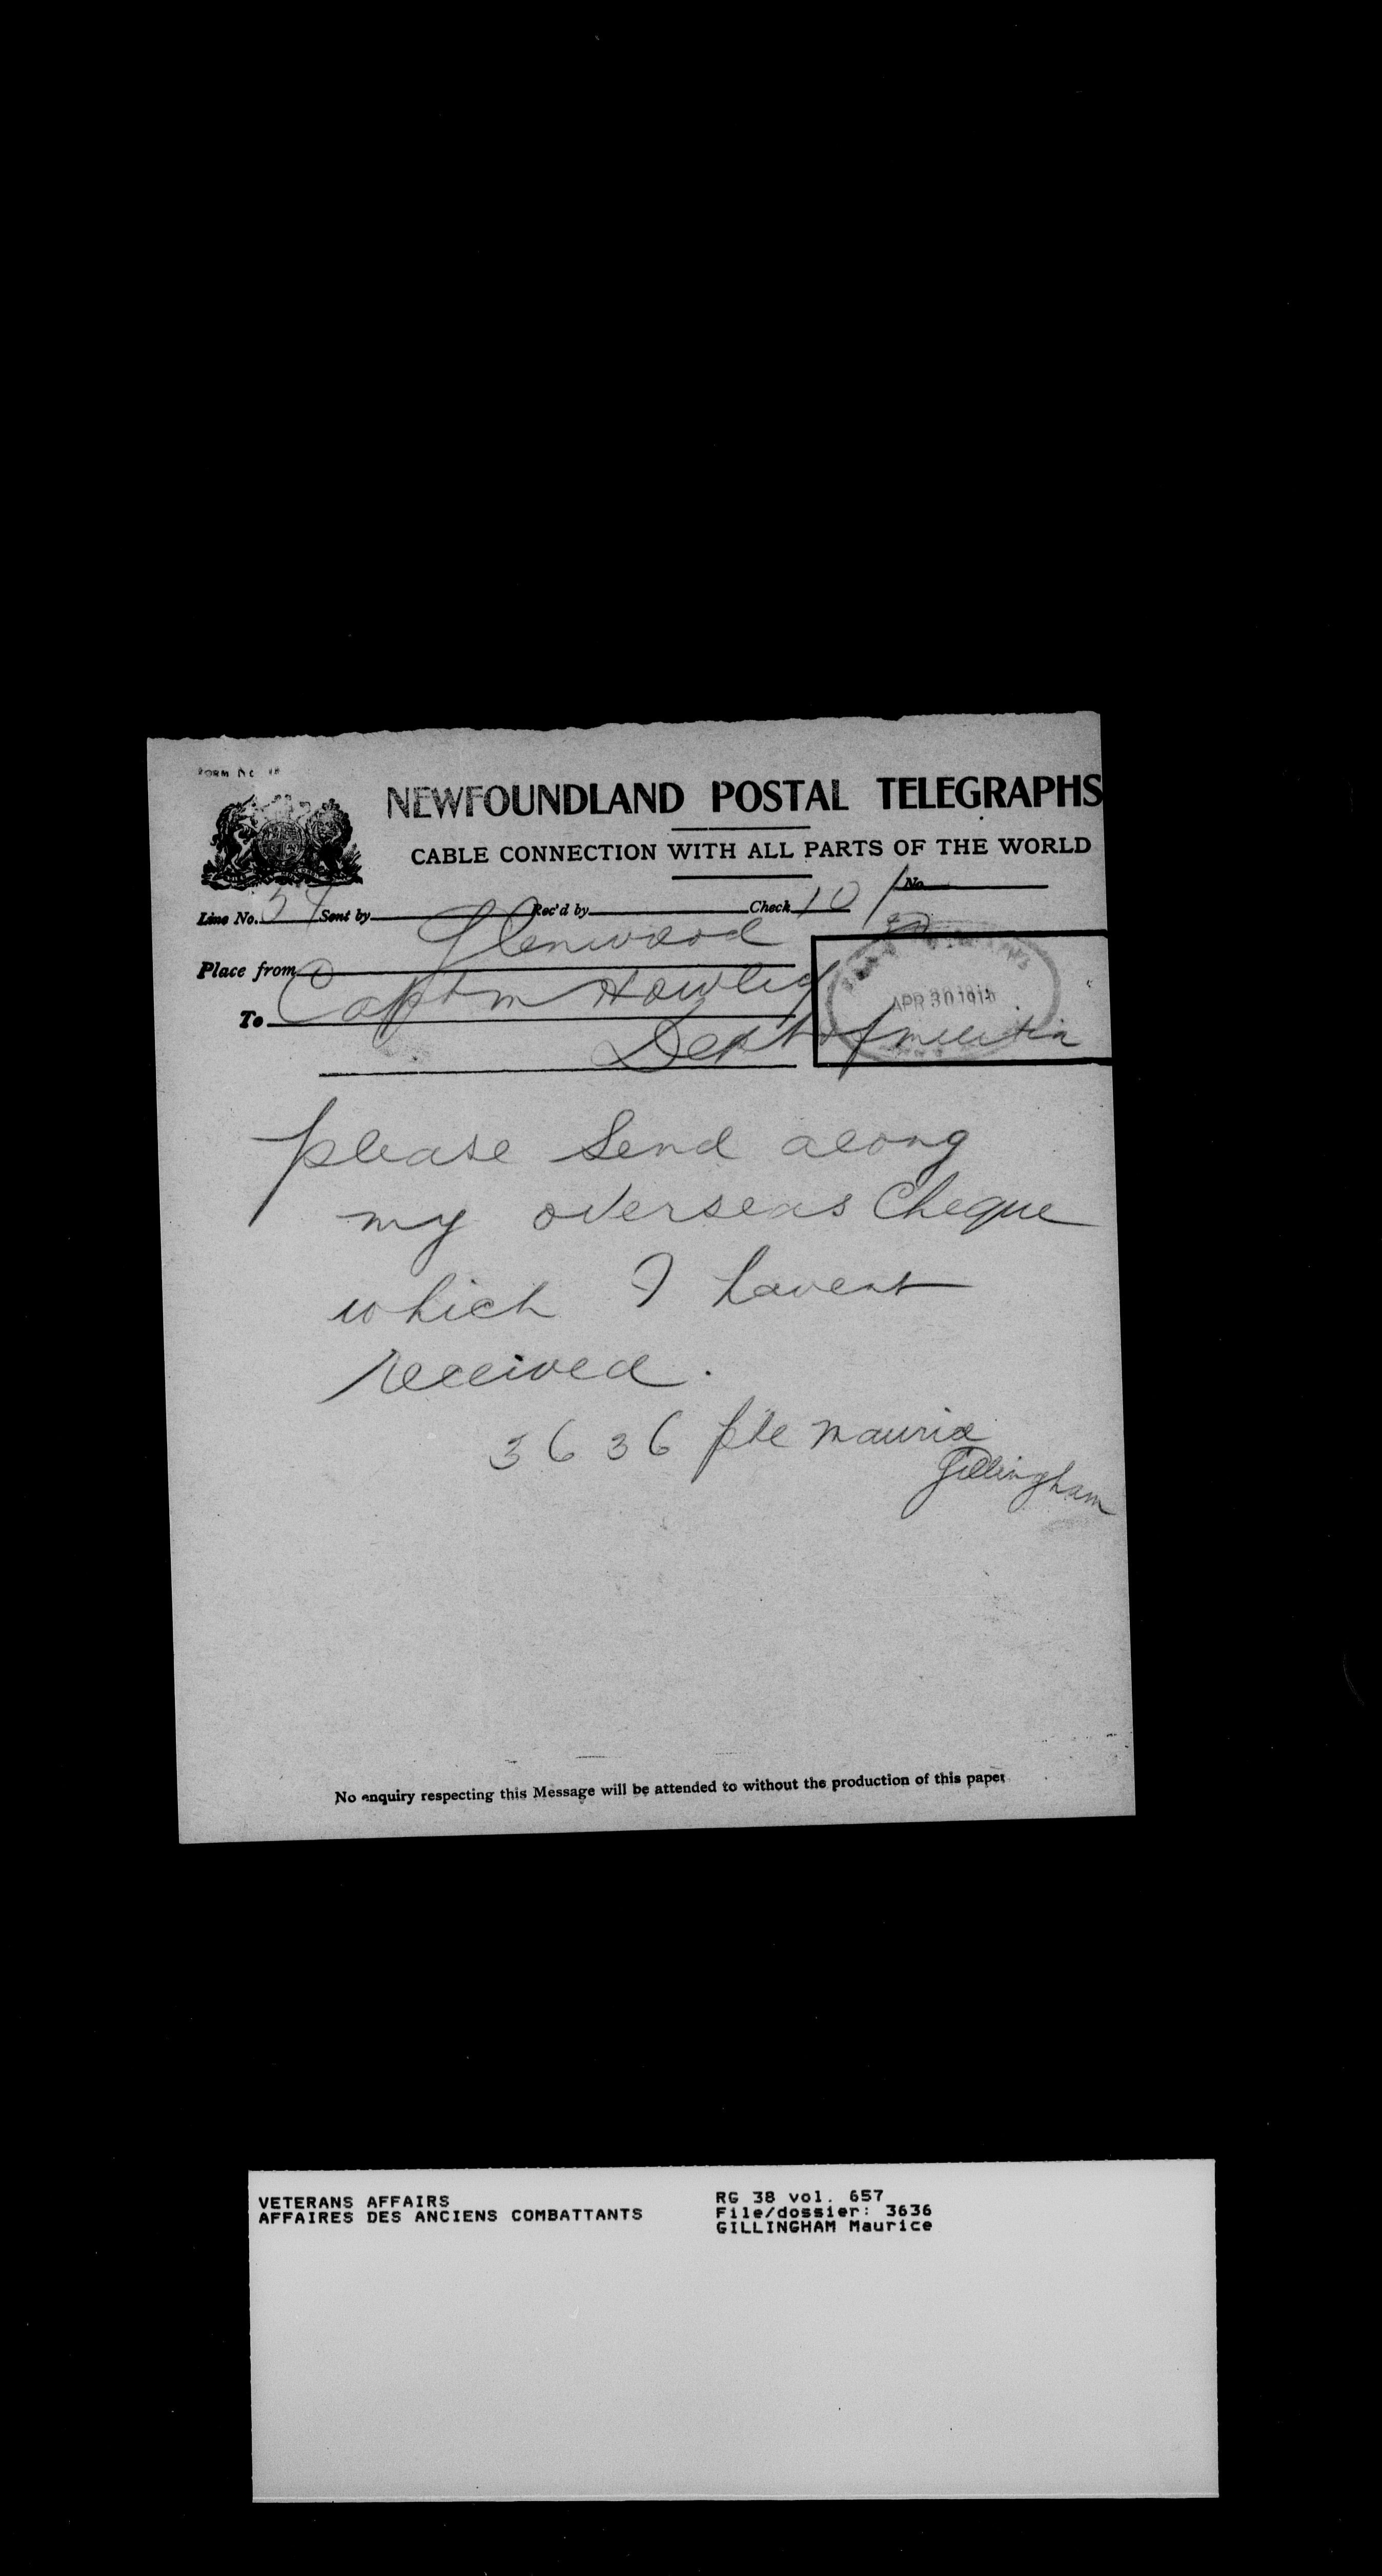 NEWFOUNDLAND POSTAL TELEGRAPHS
CABLE CONNECTION WITH ALL PARTS OF THE WORLD
No.
Line No. Sent by Rec'd by Check 10
Place from Glenwood
To Capt m Howley
Dept of militia
APR 30 191
please send along
my overseas Cheque
which I havent
received.
3636 pte Maurice
Gillingham
No enquiry respecting this Message will be attended to without the production of this paper
VETERANS AFFAIRS
AFFAIRES DES ANCIENS COMBATTANTS
RG 38 vol. 657
File/dossier: 3636
GILLINGHAM Maurice